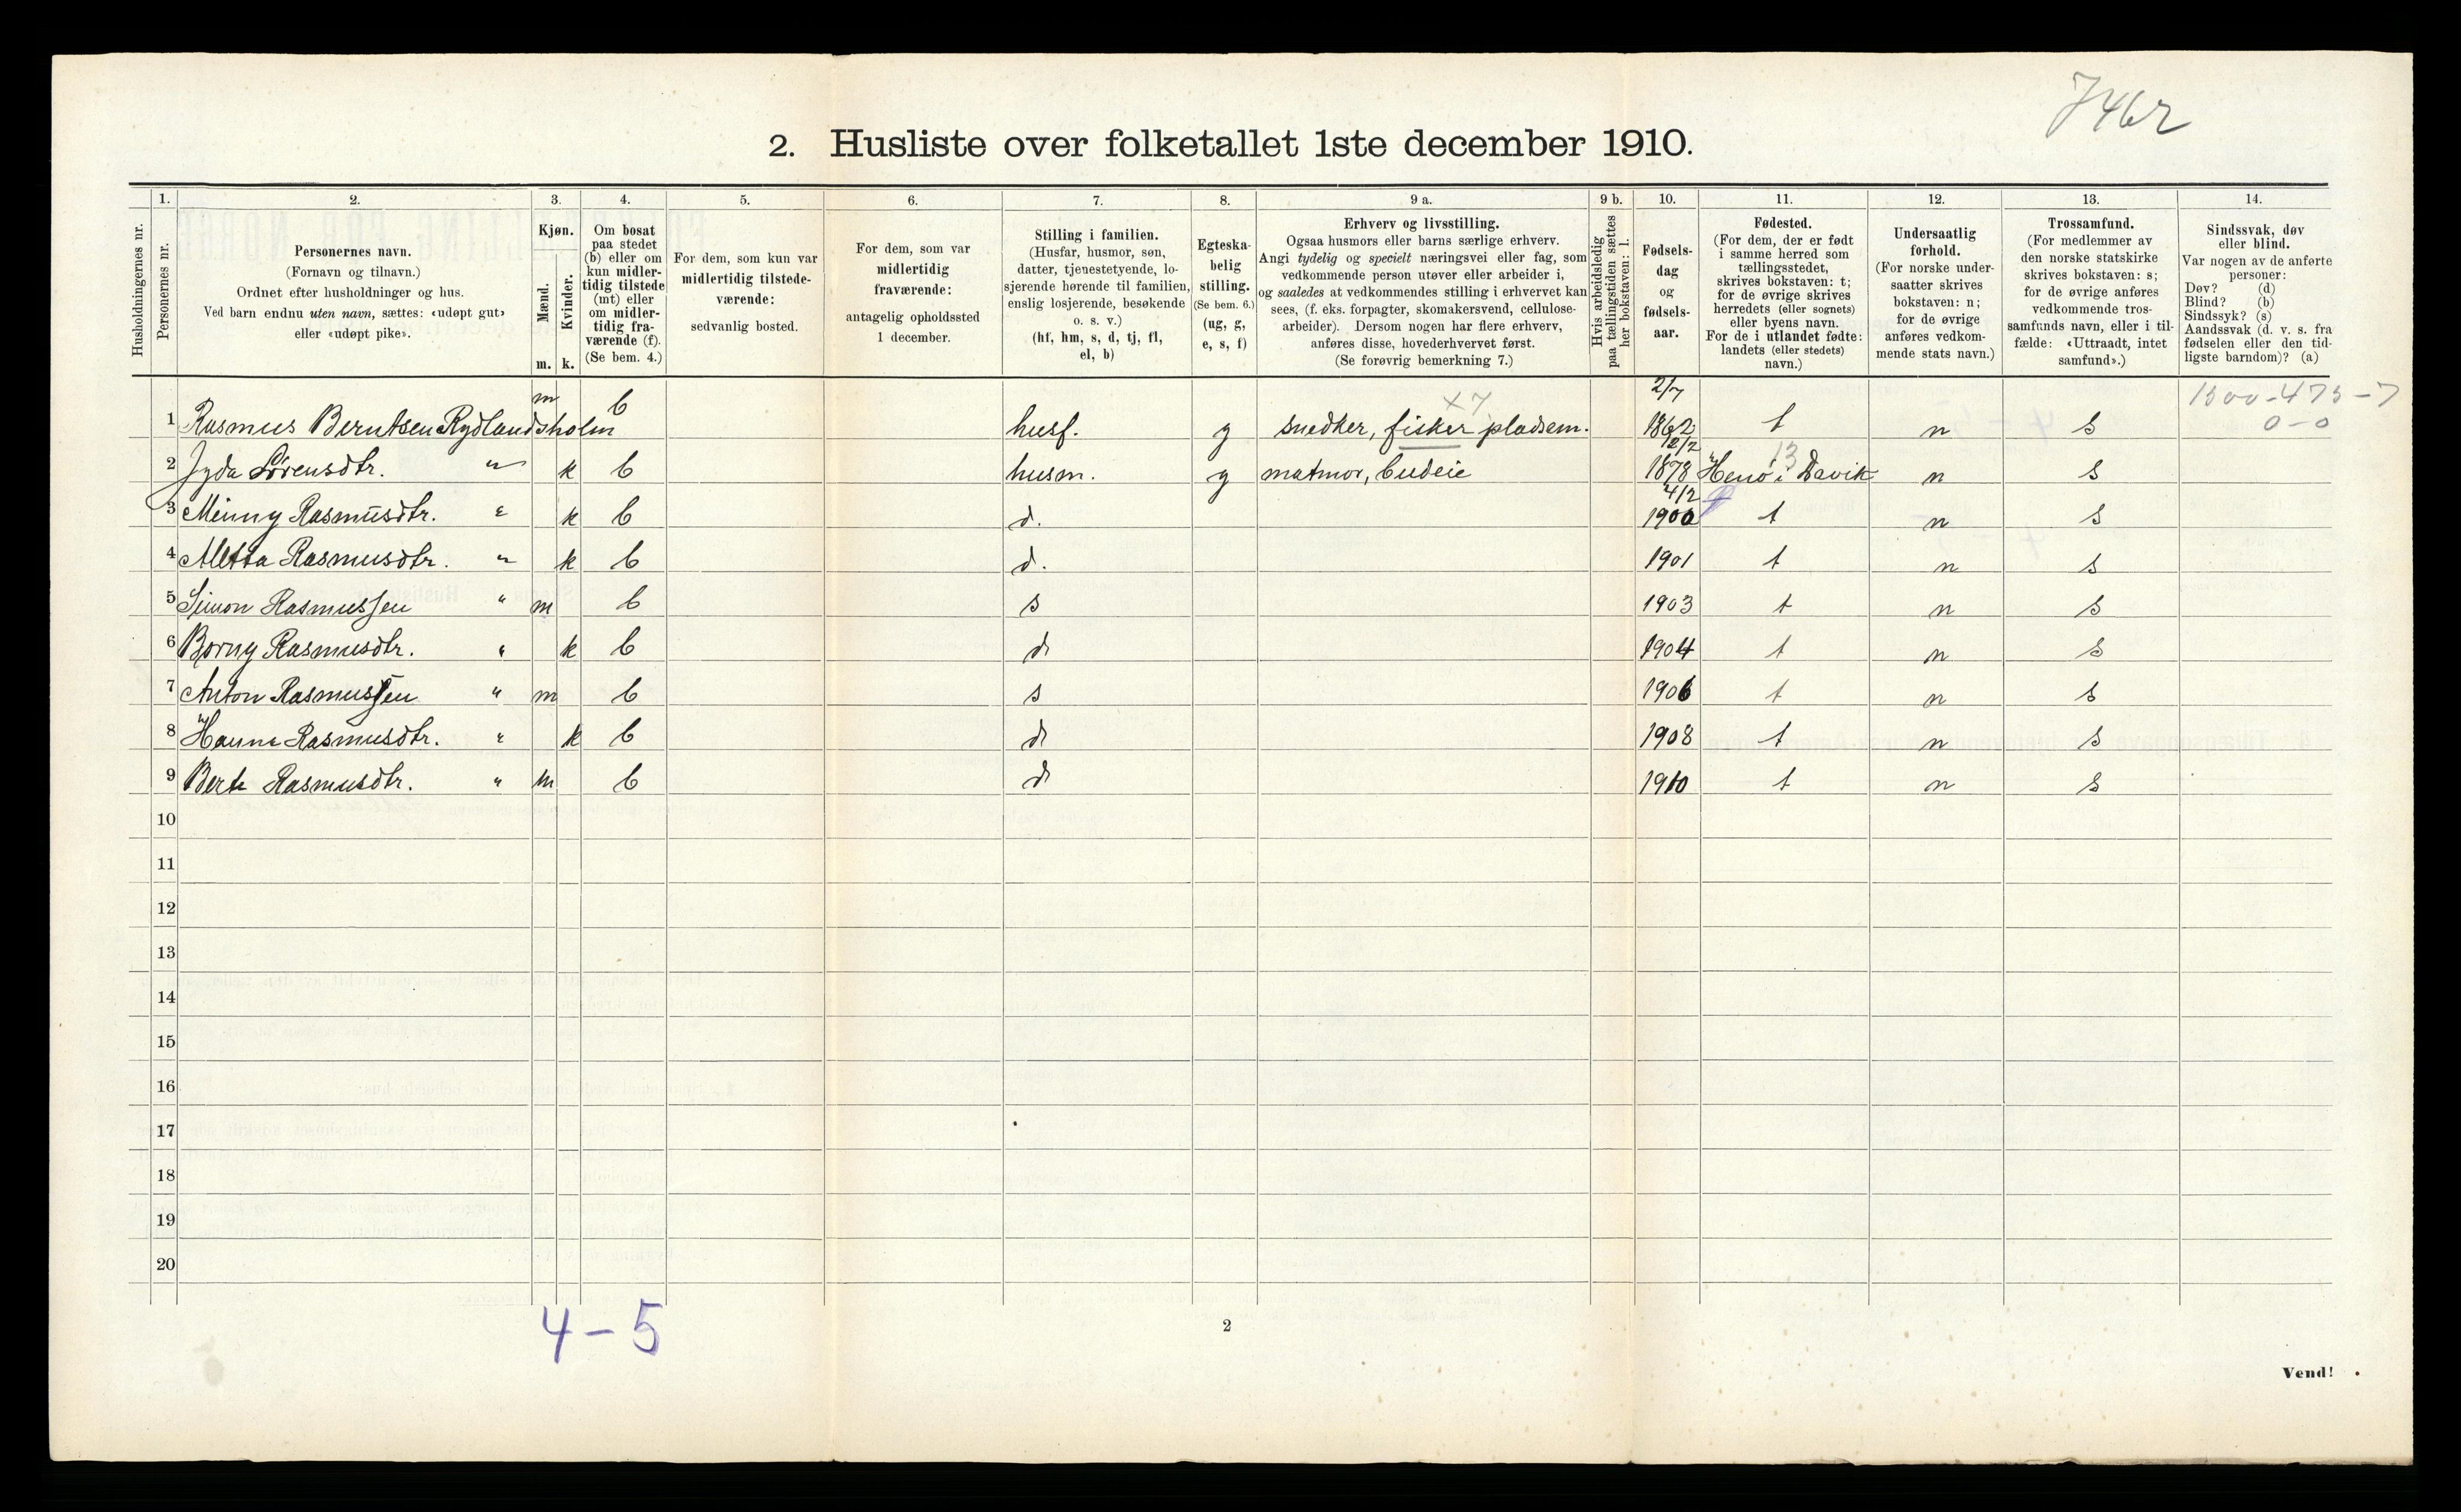 7462
2. Husliste over folketallet 1ste december 1910.
Husholdningernes nr.
1.
Personernes nr.
2.
Personernes navn.
(Fornavn og tilnavn.)
Ordnet efter husholdninger og hus.
Ved barn endnu uten navn, sættes: «udøpt gut»
eller «udøpt pike».
3.
Kjøn.
Mænd.
Kvinder.
m. k.
4.
Om bosat
paa stedet
(b) eller om
kun midler-
tidig tilstede
(mt) eller
om midler-
tidig fra-
værende (f).
(Se bem. 4.)
5.
For dem, som kun var
midlertidig tilstede-
værende:
sedvanlig bosted.
6.
For dem, som var
midlertidig
fraværende:
antagelig opholdssted
1 december.
7.
Stilling i familien.
(Husfar, husmor, søn,
datter, tjenestetyende, lo-
sjerende hørende til familien,
enslig losjerende, besøkende
o. s. v.)
(hf, hm, s, d, tj, fl,
el, b)
8.
Egteska-
belig
stilling.
(Se bem. 6.)
(ug, g,
e, s, f)
9 a.
Erhverv og livsstilling.
Ogsaa husmors eller barns særlige erhverv.
Angi tydelig og specielt næringsvei eller fag, som
vedkommende person utøver eller arbeider i,
og saaledes at vedkommendes stilling i erhvervet kan
sees, (f. eks. forpagter, skomakersvend, cellulose-
arbeider). Dersom nogen har flere erhverv,
anføres disse, hovederhvervet først.
(Se forøvrig bemerkning 7.)
9 b.
Hvis arbeidsledig
paa tællingstiden sættes
her bokstaven: l.
10.
Fødsels-
dag
og
fødsels-
aar.
11.
Fødested.
(For dem, der er født
i samme herred som
tællingsstedet,
skrives bokstaven: t;
for de øvrige skrives
herredets (eller sognets)
eller byens navn.
For de i utlandet fødte:
landets (eller stedets)
navn.)
12.
Undersaatlig
forhold.
(For norske under-
saatter skrives
bokstaven: n;
for de øvrige
anføres vedkom-
mende stats navn.)
13.
Trossamfund.
(For medlemmer av
den norske statskirke
skrives bokstaven: s;
for de øvrige anføres
vedkommende tros-
samfunds navn, eller i til-
fælde: «Uttraadt, intet
samfund».)
14.
Sindssvak, døv
eller blind.
Var nogen av de anførte
personer:
Døv? (d)
Blind? (b)
Sindssyk? (s)
Aandssvak (d. v. s. fra
fødselen eller den tid-
ligste barndom)? (a)
1500-475-7
0-0
1 Rasmus Berntsen Rydlandsholm m b husf. g snedker, fisker pladsem. X 7 2/7 1862 t n s
2 Jyda Sørensdtr. " k b husm. g matmor, budeie 2/2 1878 Henø i Davik 13 n s
3 Minny Rasmusdtr. " k b d. 4/2 1900 t n s
4 Metta Rasmusdtr. " k b d. 1901 t n s
5 Simon Rasmussen " m b s 1903 t n s
6 Borny Rasmusdtr. " k b d 1904 t n s
7 Anton Rasmussen " m b s 1906 t n s
8 Hanna Rasmusdtr. " k b d 1908 t n s
9 Berte Rasmusdtr. " m b d 1910 t n s
10
11
12
13
14
15
16
17
18
19
20
4-5
2
Vend!